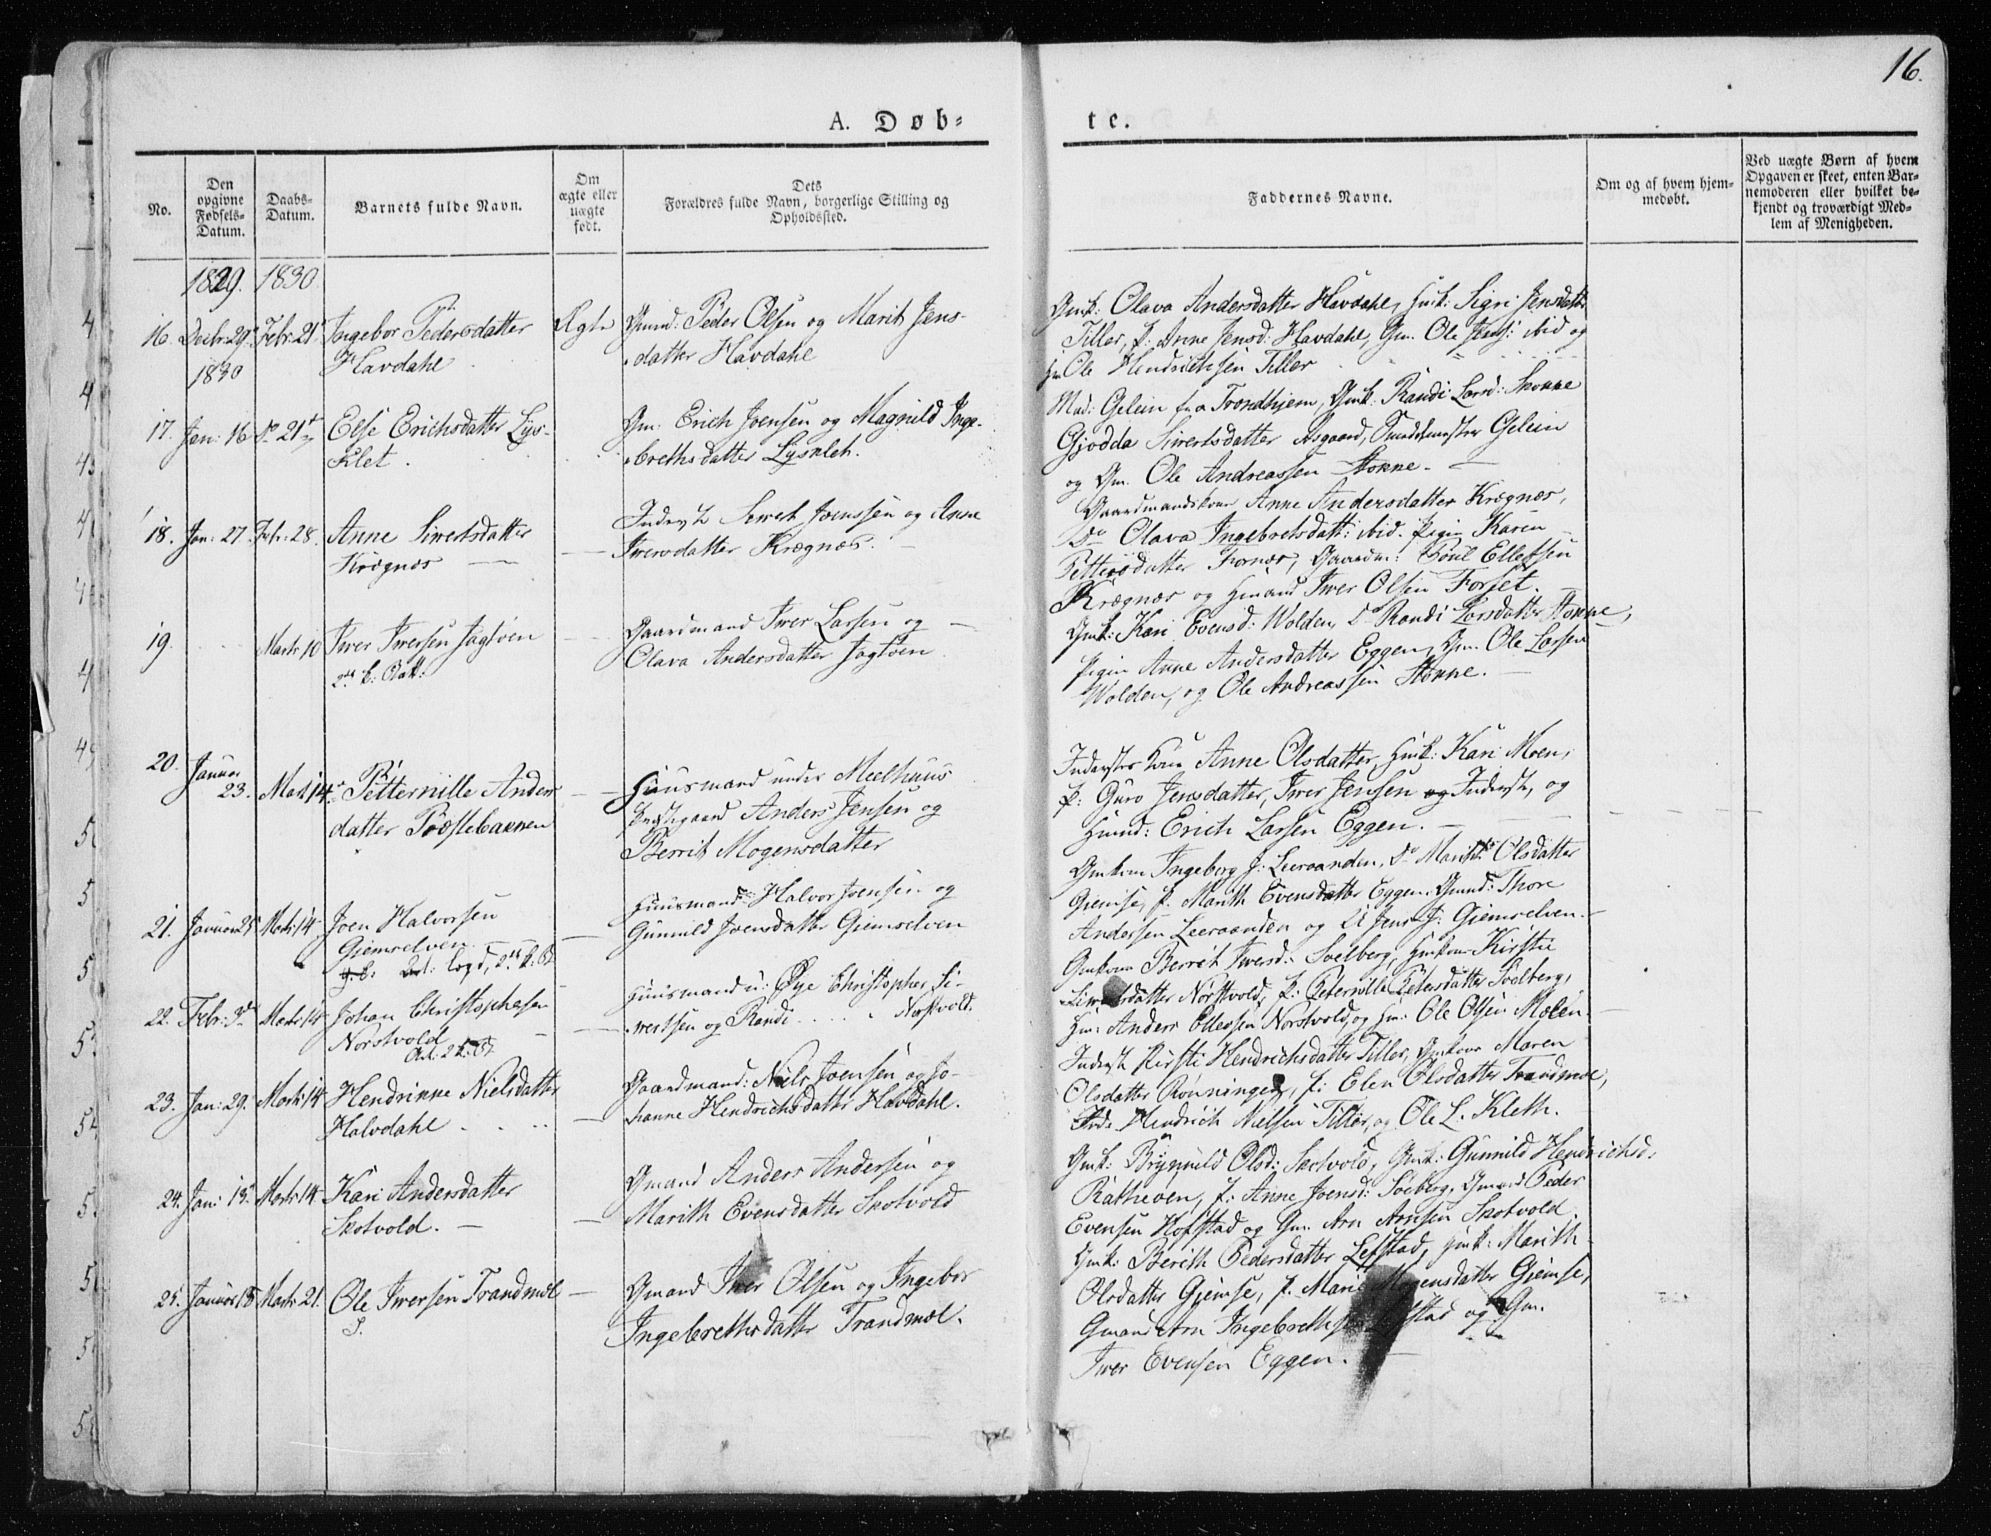 16.
A. Døb-
te.
No.
Den
opgivne
Fødsels-
Datum.
Daabs-
Datum.
Barnets fulde Navn.
Om
ægte eller
uægte
født.
Dets
Forældres fulde Navn, borgerlige Stilling og
Opholdssted.
Faddernes Navne.
Om og af hvem hjem-
medøbt.
Ved uægte Børn af hvem
Opgaven er skeet, enten Bar-
nemoderen eller hvilket be-
kjendt og troværdigt Med-
lem af Menigheden.
1829. 1830
16. Decbr: 29 Febr: 21 Ingebor Pedersdatter
Havdahl
Ægte
Gmd: Peder Olsen og Marit Jens-
datter Havdahl
Gmk: Olava Andersdatter Havdahl, Hmk: Sigri Jensdatter
Tiller, P. Anne Jensd: Havdahl, Gm. Ole Jens: ibid og
Hm Ole Hendrichsen Tiller
1830
17. Jan: 16 Do 21 Else Erichsdatter Lys-
klet.
Gm: Erich Joensen og Magnild Inge-
brethsdatter Lysklet.
Mad: Gelein fra Trondhjem, Gmk: Randi Larsd: Stokke
Gjødda Siwertsdatter Asgaard, Gelein
og Gm. Ole Andreassen Stokke.
18. Jan: 27. Febr: 28. Anne Siwertsdatter
Krægnæs
Inderst Siwert Joenssen og Anne
Iwersdatter Krægnæs.
Gaardmandskone Anne Andersdatter Krægnæs,
Do Olava Ingebretsdatt: ibid. Pigen Karen
Pettersdatter Fornæs, Gaardm: Poul Ellefsen
Krægnæs og Hmand Iwer Olsen Forset.
19. Marts 10 Iwer Iwersen Jagtøen
Gaardmand Iwer Larsen og
Olava Andersdatter Jagtøen
Gmk: Kari Evensd: Wolden, Do Randi Larsdatter Stokke,
Pigen Anne Andersdatter Eggen, Gm. Ole Larsen
Wolden, og Ole Andreassen Stokke.
20. Januar
23. Marts 14 Petternille Anders
datter Præstebakken
Huusmand under Meelhuus
Præstegaard Anders Jensen og
Berrit Mogensdatter
Inderstes Kone Anne Olsdatter, Hmk: Kari Moen,
P: Guro Jensdatter, Iwer Jensen og Inderst, og
Huusmd: Erich Larsen Eggen.
21. Januar 25 Marts 14 Joen Halvorsen
Gjemselven
Huusmand Halvor Joensen og
Gunnild Joensdatter Gjemselven
Gmkone Ingeborg J: Leeraanden, Do Marith Olsdatter
Gjemse, P. Marith Evensdatter Eggen. Gmd: Thore
Andersen Leeraanden og Jens J: Gjemselven.
22. Febr: 3 Marts 14 Johan Christophersen
Norstvold
Huusmand u: Øye Christopher Si-
wertsen og Randi . . . . Norstvold.
Gmkone Berrit Iwersd: Soelberg, Hmkone Kirstie
Siwertsdatter Norstvold, P: Peternille Petersdatter Soelberg,
Hm: Anders Ellefsen Norstvold, og Hm: Ole Olsen Moeen.
23. Jan: 29. Marts 14 Hendrikke Nielsdatter
Halvdahl
Gaardmand: Niels Joensen og Jo-
hanne Hendrichsdatter Havdahl.
Inderst Kirsti Hendrichsdatter Tiller, Gmkone Maren
Olsdatter Rønningen, P: Elen Olsdatter Trandmoe,
Hendrich Nielsen Tiller, og Ole L. Kleth.
24. Jan: 13 Marts 14 Kari Andersdatter
Skotvold.
Gmand Anders Andersen og
Marith Evensdatter Skotvold
Gmk: Brynnild Olsd: Skotvold, Gmk: Gunnild Hendrichsd.
Rathieven, P: Anne Joensd: Soeberg, Gmand Peder
Evensen Hofstad og Gm. Arn Arnsen Skotvold.
25. Januar 18 Marts 21. Ole Iwersen Trandmoe
Gmand Iwer Olsen og Ingebor
Ingebrethsdatter Trandmoe.
Gmk: Bereth Pedersdatter Lefstad, Hmk: Marith
Olsdatter Gjemse, P. Marie Mogensdatter Gjemse,
Gmand Arn og Gm.
Iwer Evensen Eggen.